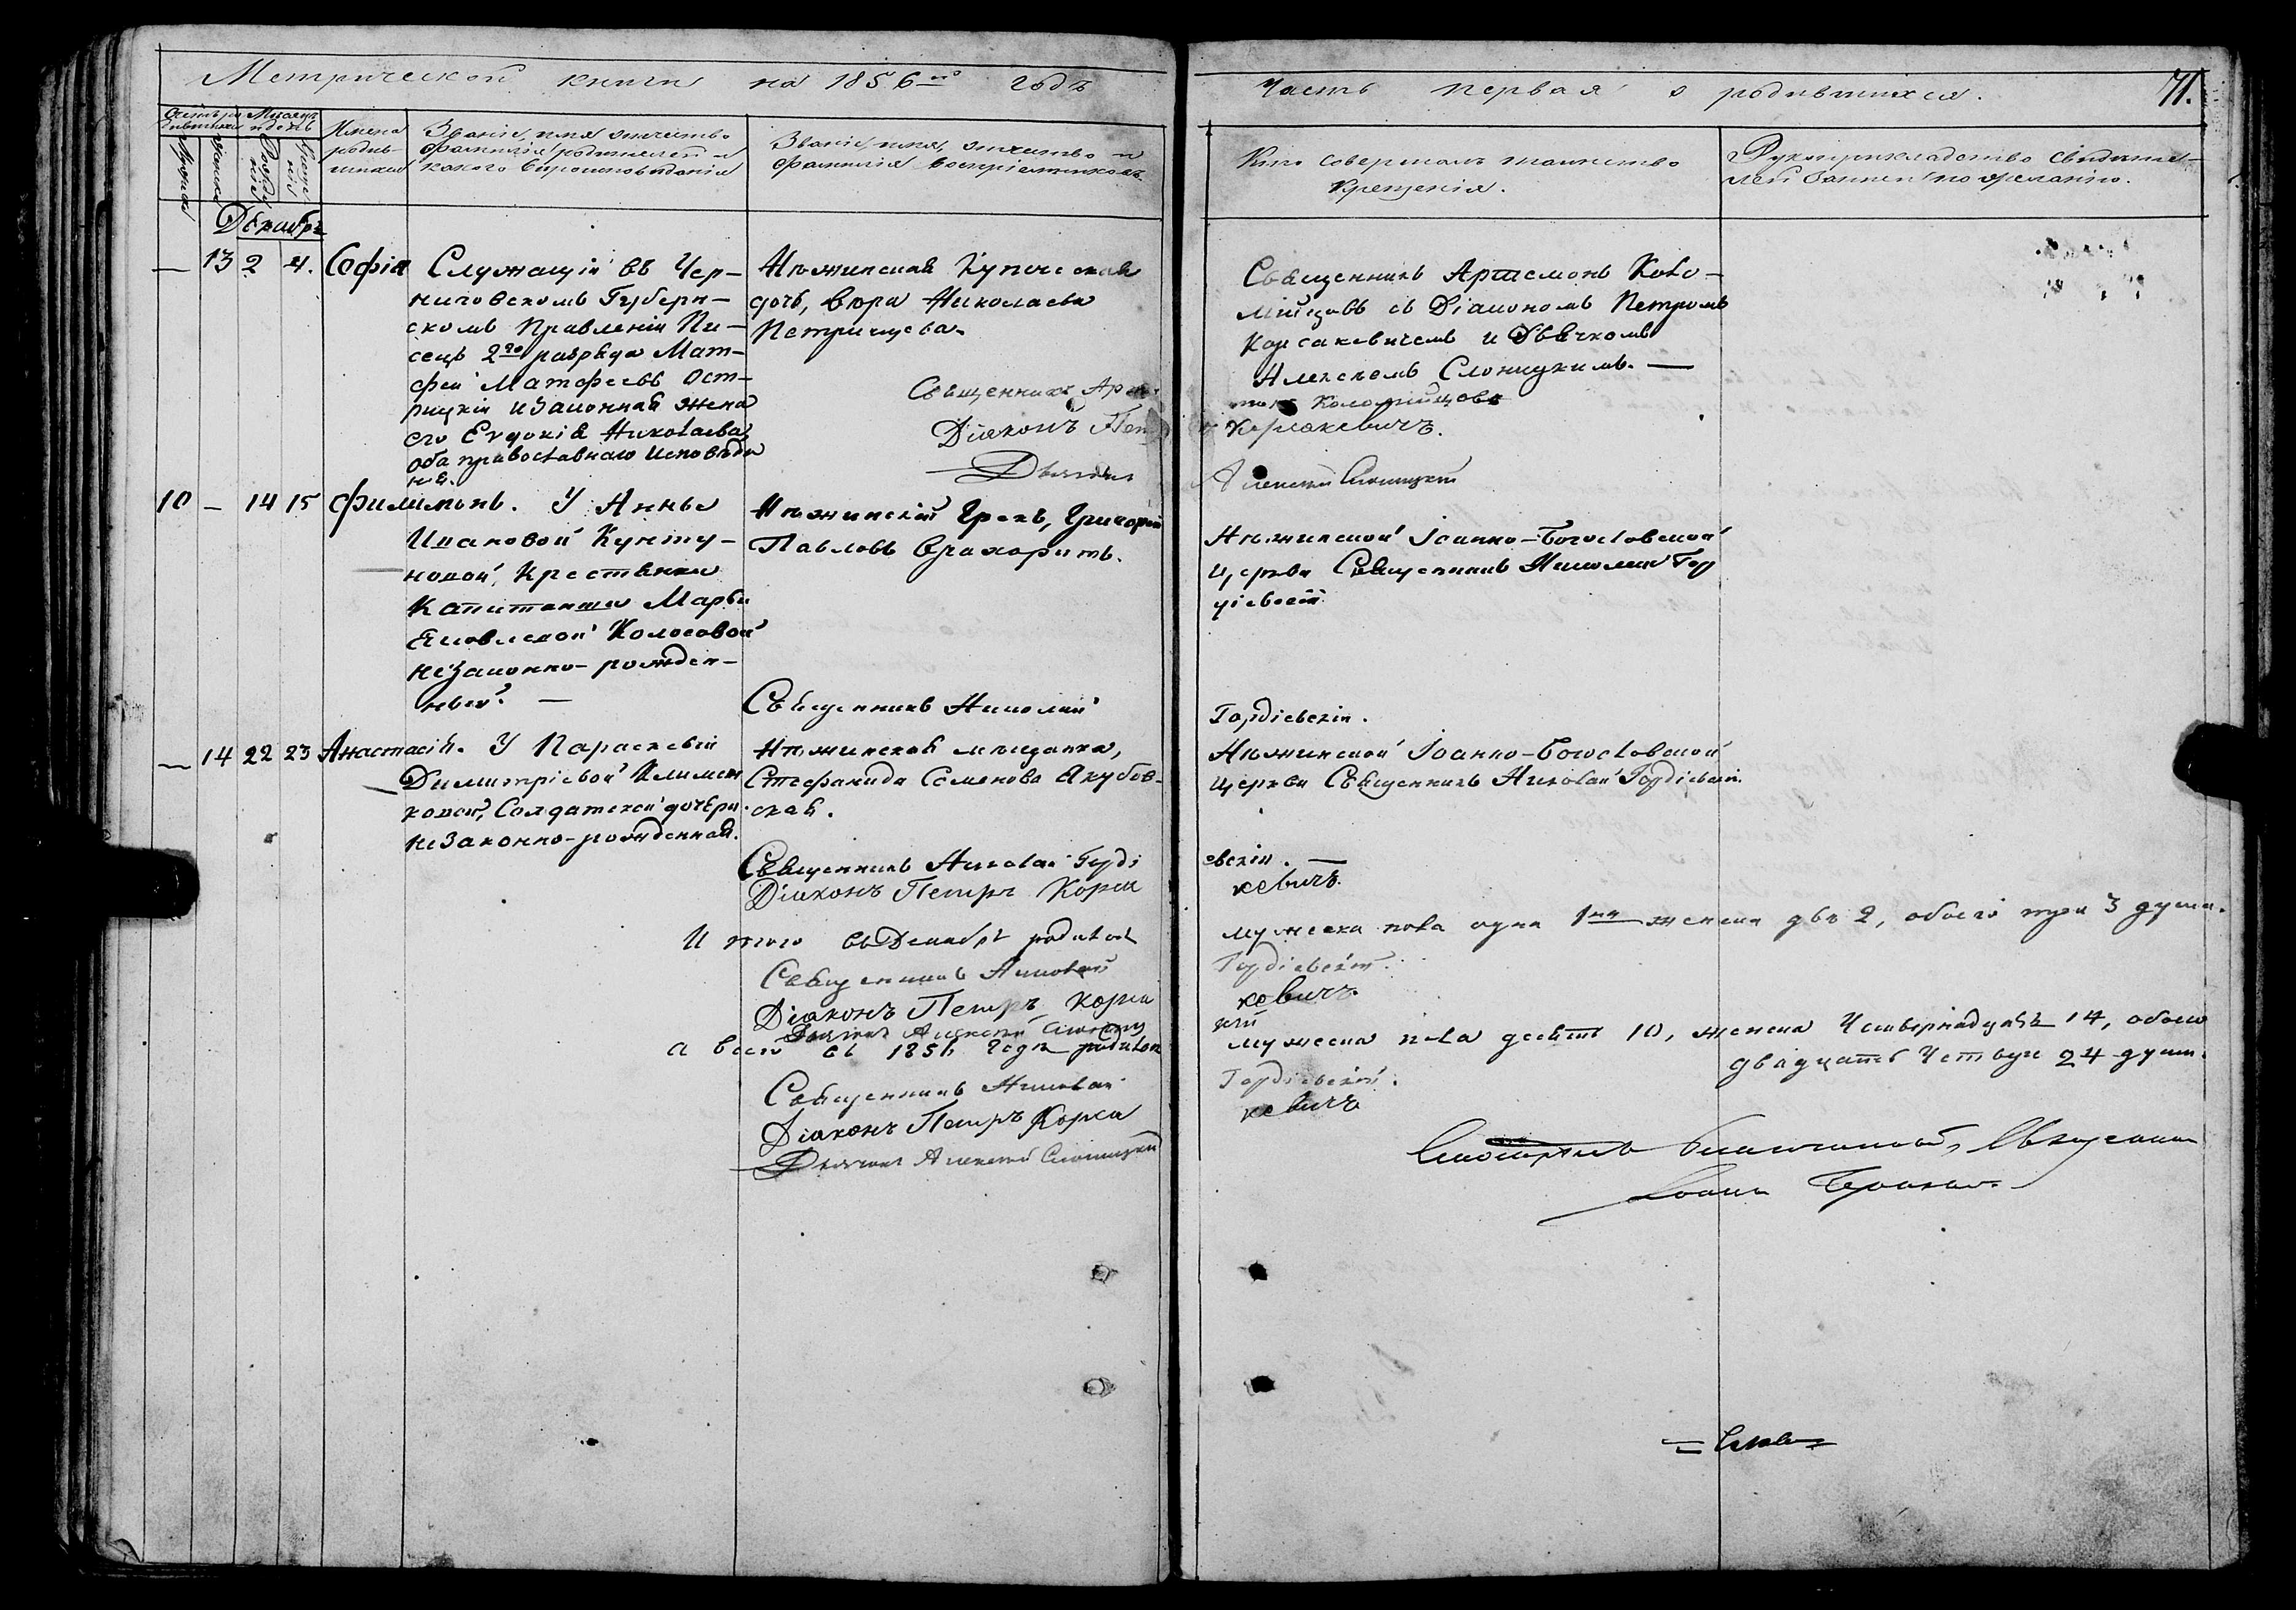 Метрической книги на 1856й годъ
Часть первая о родившихся.
71.
Счетъ родившихся
Мѣсяцъ и день
Мужеска
Женска
Рожденія
Крещенія
Имена родившихся
Званіе, имя отчество
фамилія родителей и
какого вѣроисповѣданія
Званіе, имя, отчество и
фамилія воспріемниковъ.
Кто совершалъ таинство
Крещенія.
Рукоприкладство свидѣте-
лей записи по желанію.
Декабрь
— 13 2 4. Софія
Служащій въ Чер-
ниговскомъ Губерн-
скомъ Правленіи Пи-
сецъ 2го разряда Мат-
фей Матфеевъ Ост-
рицкій и законная жена
его Евдокія Николаева,
оба православнаго исповѣда
нія.
Нѣжинская купеческая
дочь, Вѣра Николаева
Петрищева.
Священникъ Артемонъ Коло-
мійцовъ съ Діакономъ Петромъ
Корсакевичемъ и Дьячкомъ
Алексѣемъ Слоницкимъ. —
Священникъ Арте
монъ Коломійцовъ
Діаконъ Петръ
Корсакевичъ.
Дьячекъ
Алексѣй Слоницкій
10 — 14 15 Филимонъ.
У Анны
Ивановой Кунту-
новой, Крестьянки
Капитанши Марьи
Яковлевой Колосовой
незаконно-рожден-
ный. —
Нѣжинскій Грекъ, Григорій
Павловъ Врахоритъ.
Нѣжинской Іоанно-Богословской
церкви Священникъ Николай Гор
діевскій
Священникъ Николай
Гордіевскій.
— 14 22 23 Анастасія.
У Параскевіи
Димитріевой Климен
ковой, Солдатской дочери
незаконно-рожденная.
Нѣжинская мѣщанка,
Стефанида Семенова Якубов-
ская.
Нѣжинской Іоанно-Богословской
церкви Священникъ Николай Гордіевскій.
Священникъ Николай Горді
евскій. —
Діаконъ Петръ Корса
кевичъ.
Итого въ Декабрѣ родилось
мужеска пола одна 1на женска двѣ 2, обоего три 3 души.
Священникъ Николай
Гордіевскій.
Діаконъ Петръ Корса
кевичъ.
Дьячекъ Алексѣй Слониц
кій
а всего въ 1856 годѣ родилось
мужеска пола десять 10, женска Четырнадцать 14, обоего
двадцать Четыре 24 души.
Священникъ Николай
Гордіевскій.
Діаконъ Петръ Корса
кевичъ
Дьячекъ Алексѣй Слоницкій
Смотрѣлъ Благочинный, Священникъ
Іоаннъ